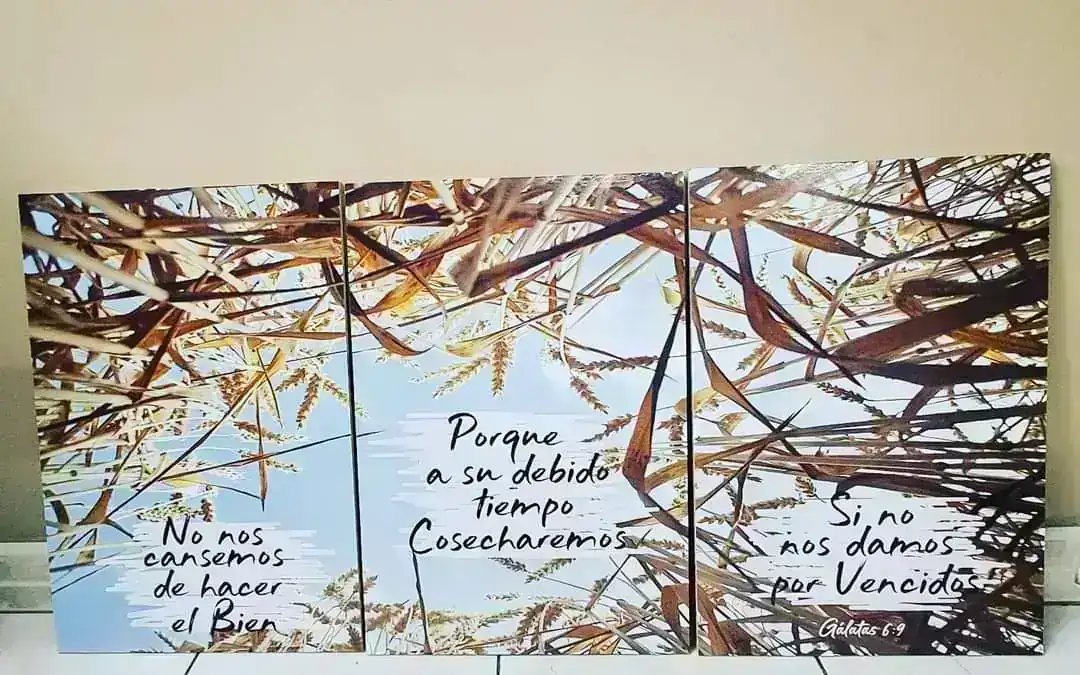 No nos
cansemos
de hacer
el Bien
Porque
a su debido
tiempo
Cosecharemos
Si no
nos damos
por Vencidos
Gálatas 6:9